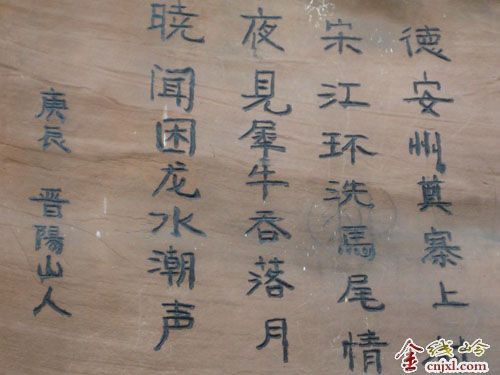 德安州奠寨上
宋江环洗馬尾情
夜見犀牛吞落月
晓闻困龙水潮声
庚辰 晋陽山人
金线岭
cnjxl.com